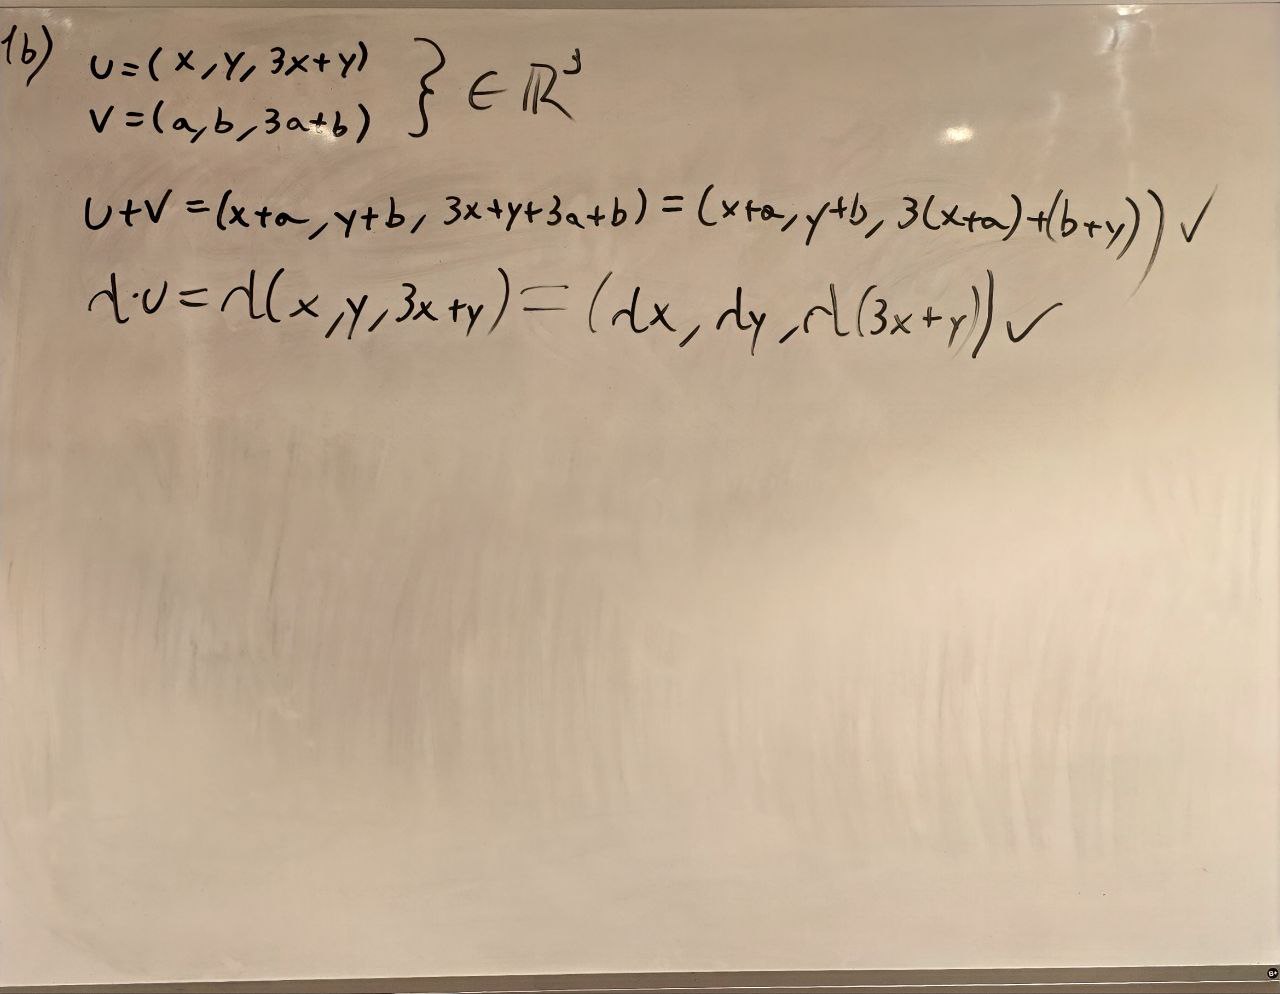 1b)
u=(x,y,3x+y)
v=(a,b,3a+b) } ∈ ℝ³
u+v=(x+a,y+b, 3x+y+3a+b)=(x+a,y+b, 3(x+a)+(b+y)) ✓
λ·u=λ(x,y,3x+y)=(λx, λy,λ(3x+y)) ✓